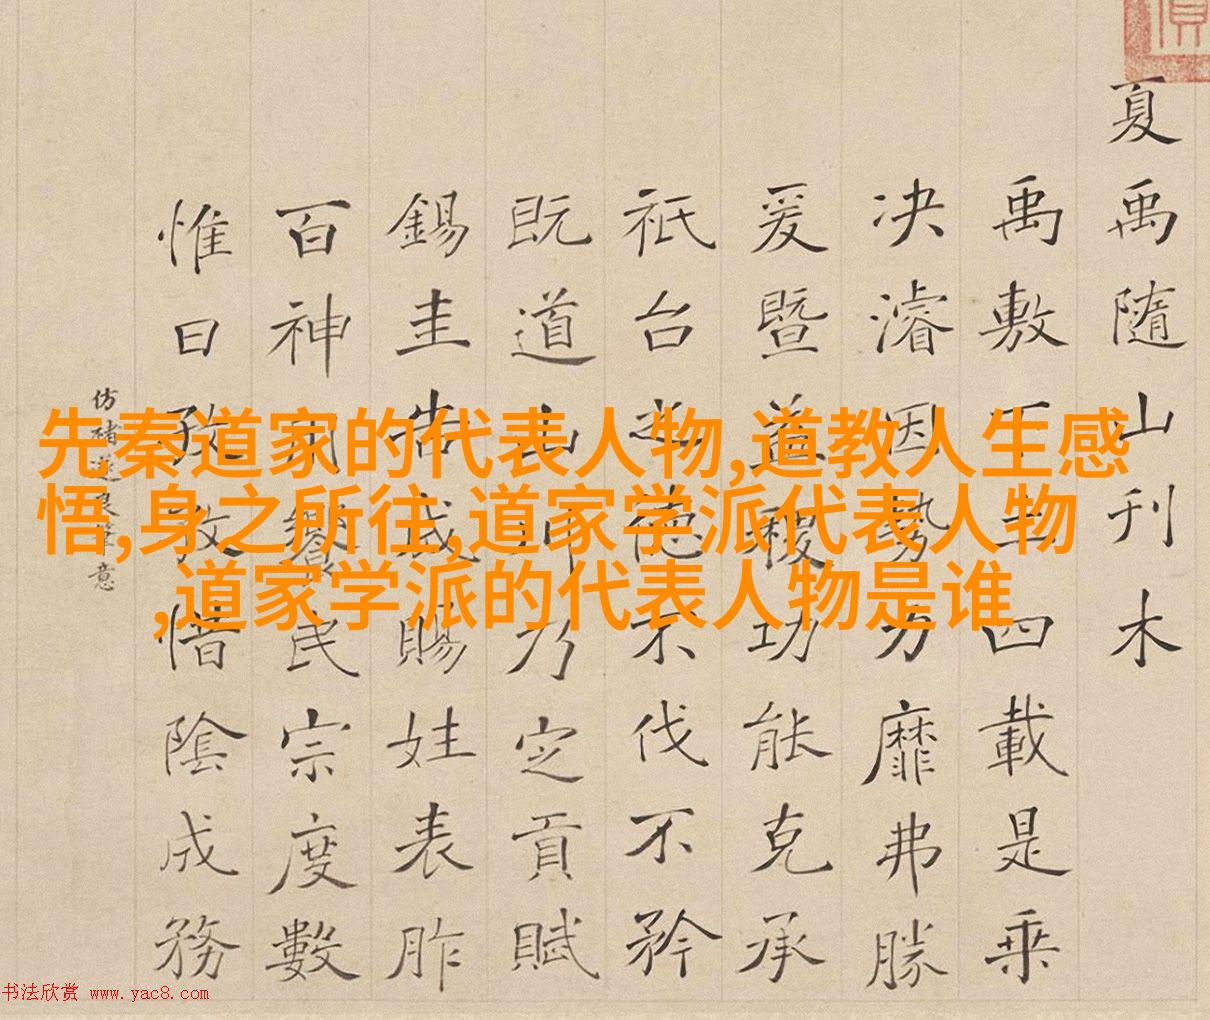 夏禹隨山刊木
禹敷下土四載是乘
决濬因勢力靡弗勝
爰暨益稷功能克承
祇台先德不伐不矜
既道山川乃定貢賦
錫圭告成賜姓表胙
百神用饗民宗度數
惟日孜孜惜陰成務
仿褚遂良筆意
先秦道家的代表人物,道教人生感
悟,身之所往,道家学派代表人物
,道家学派的代表人物是谁
书法欣赏 www.yac8.com